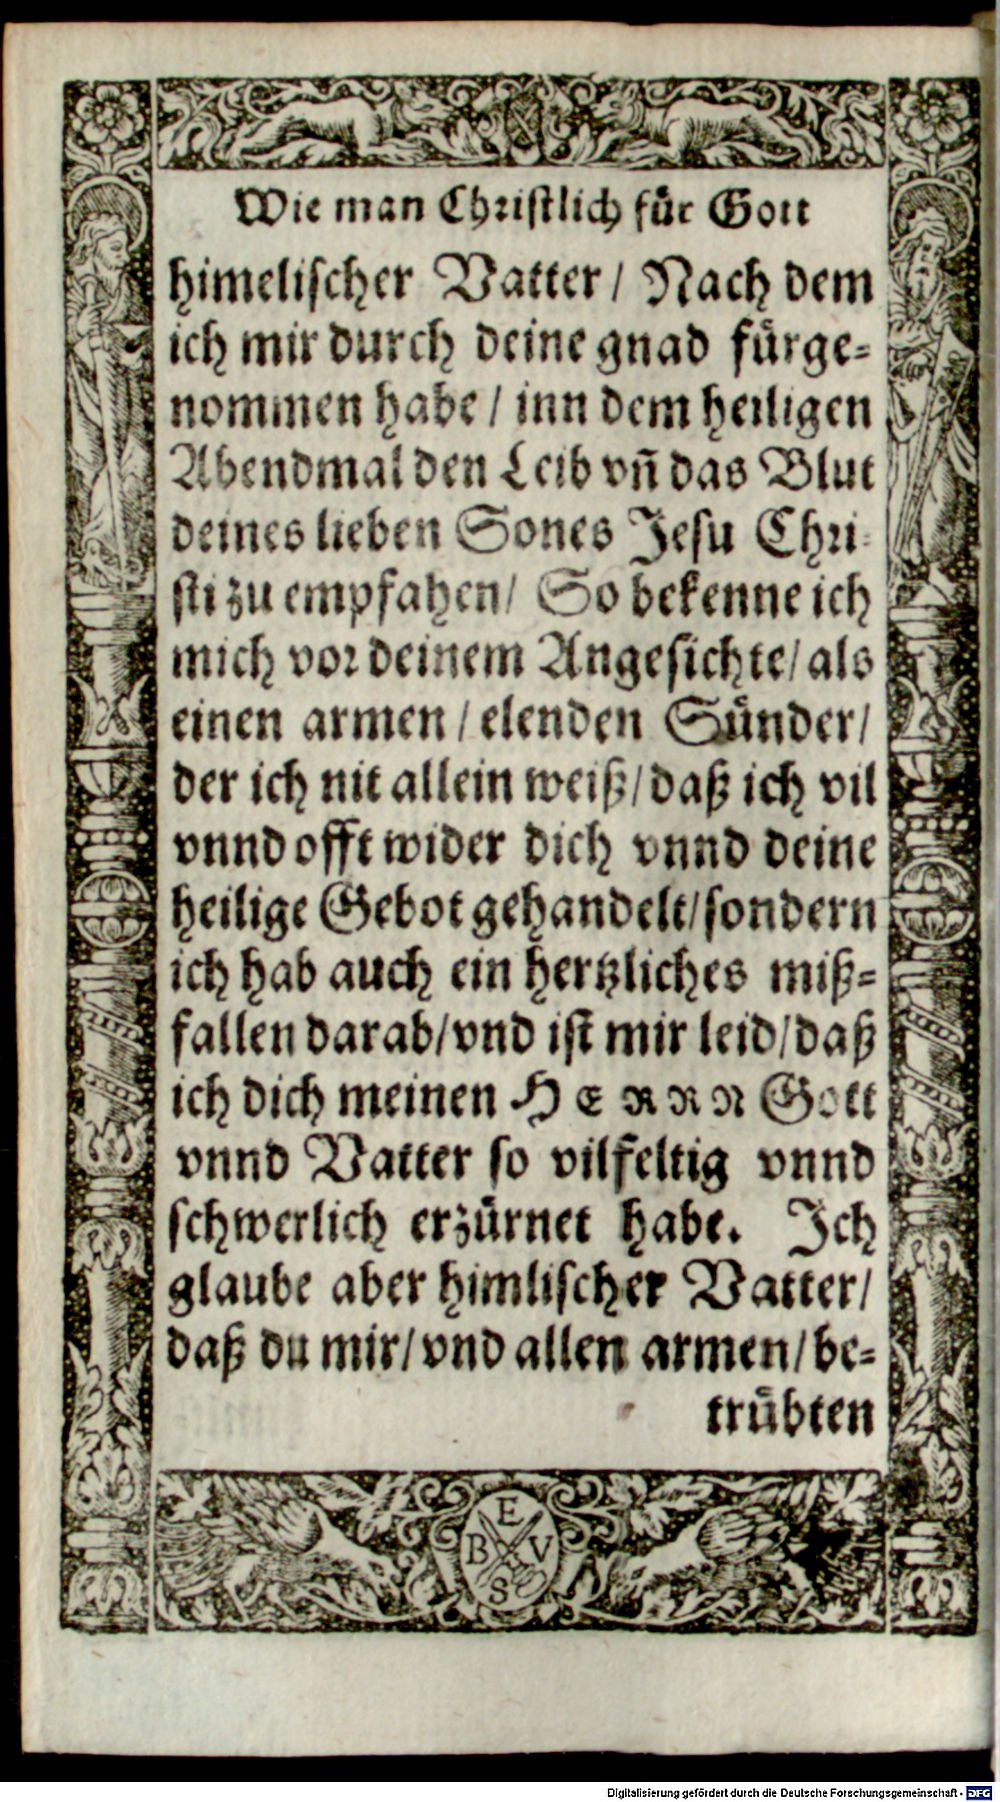 Wie man Christlich für Gott
himelischer Vatter / Nach dem
ich mir durch deine gnad fürge⸗
nommen habe / inn dem heiligen
Abendmal den Leib vn̄ das Blut
deines lieben Sones Jesu Chri⸗
sti zu empfahen / So bekenne ich
mich vor deinem Angesichte / als
einen armen / elenden Sünder /
der ich nit allein weiß / daß ich vil
vnnd offt wider dich vnnd deine
heilige Gebot gehandelt / sondern
ich hab auch ein hertzliches miß⸗
fallen darab / vnd ist mir leid / daß
ich dich meinen HERRN Gott
vnnd Vatter so vilfeltig vnnd
schwerlich erzürnet habe. Ich
glaube aber himlischer Vatter /
daß du mir / vnd allen armen / be⸗
trübten
E
B V
S
Digitalisierung gefördert durch die Deutsche Forschungsgemeinschaft - DFG